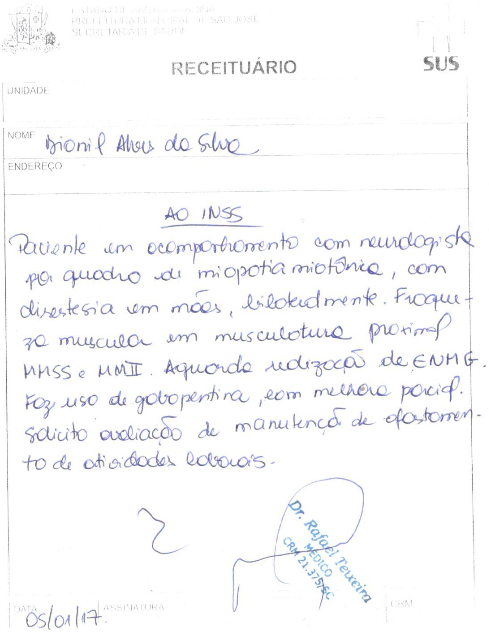 ESTADO DE SANTA CATARINA
PREFEITURA MUNICIPAL DE SÃO JOSÉ
SECRETARIA DE SAÚDE
SUS
RECEITUÁRIO
UNIDADE
NOME Dionil Alves da Silva
ENDEREÇO
AO INSS
Paciente em acompanhamento com neurologista
por quadro de miopatia miotônica, com
disestesia em mãos, bilateralmente. Fraque-
za muscular em musculatura proximal
MMSS e MMII. Aguarda realização de ENMG.
Faz uso de gabapentina, com melhora parcial.
Solicito avaliação de manutenção de afastamen-
to de atividades laborais.
Dr. Rafael Teixeira
MÉDICO
CRM 21.375/SC
DATA ASSINATURA CRM
05/01/17.